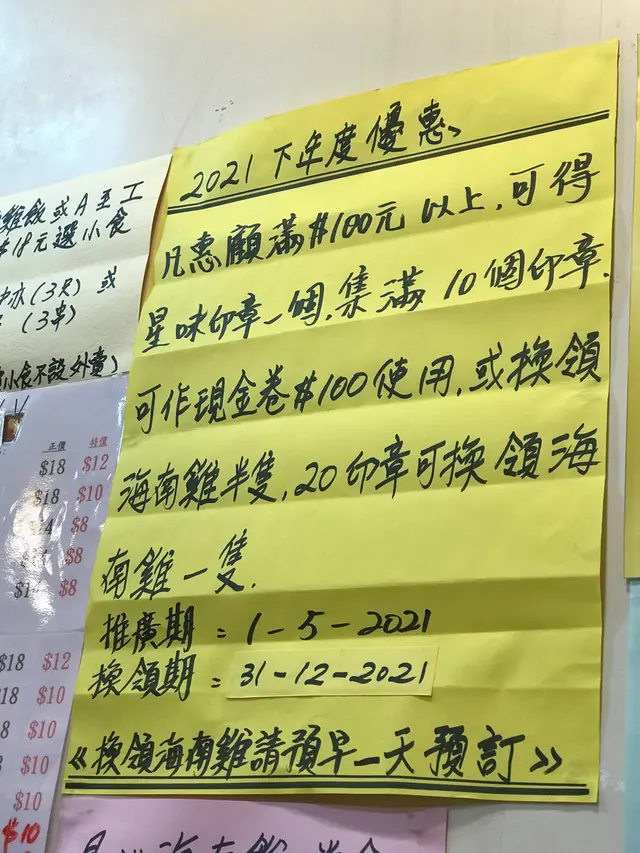 2021 下年度優惠
凡惠顧滿$100元以上,可得
星味印章一個,集滿 10個印章.
可作現金卷$100使用,或換領
海南雞半隻,20印章可換領海
南雞一隻.
推廣期:1-5-2021
換領期:31-12-2021
《換領海南雞請預早一天預訂》
雞飯或A至工
$18元選小食
(3只) 或
(3串)
小食不設外賣)
正價 特價
$18 $12
$18 $10
$8
$8
$8
$18 $12
$18 $10
$10
$10
$10
$10